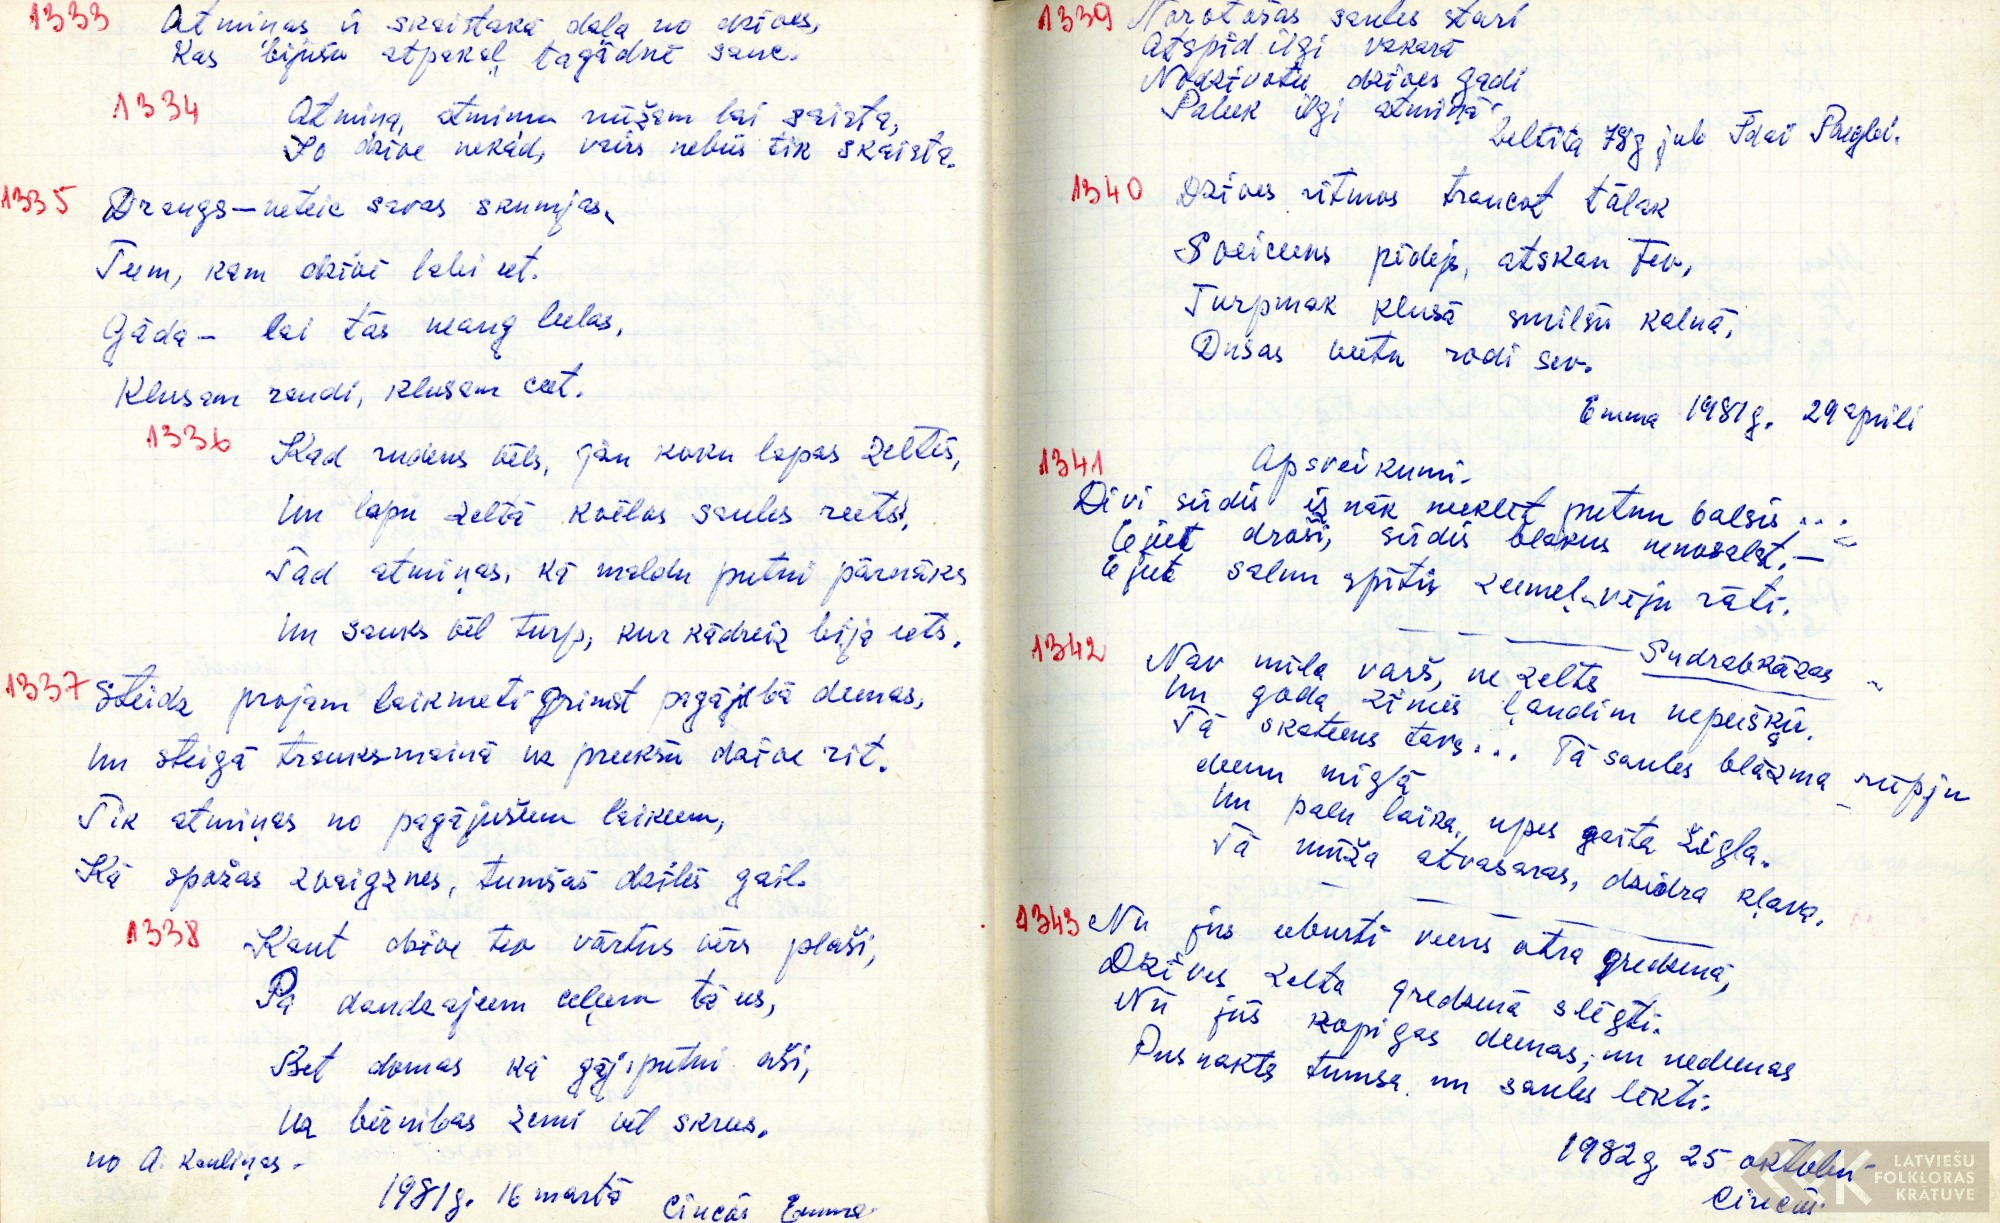 1333 Atmiņas ir skaistākā daļa no dzīves,
Kas bijušo atpakaļ tagādnē sauc.
1334 Atmiņa, atmiņu mūžam lai saista,
Jo dzīve nekad, vairs nebūs tik skaista.
1335 Draugs – neteic savas skumjas,
Tiem, kam dzīvē labi iet.
Gāda – lai tās mang lielas,
Klusam raudi, klusam ciet.
1336 Kad rudens vēls, jau koku lapas zeltīs,
Un lapu zeltā kvēlos saules riets,
Tad atmiņas, kā maldu putni pārnāks
Un sauks vēl turp, kur kādreiz bija iets.
1337 Steidz projām laikmeti grimst pagājībā dienas,
Un steigā trauksmainā uz priekšu dzīve rit.
Tik atmiņas no pagājušiem laikiem,
Kā spožas zvaigznes, tumšās dzīlēs gail.
1338 Kaut dzīve tev vārtus vērs plaši,
Pa daudzajiem ceļiem tā ies,
Bet domas kā gājiputni aši,
Uz bērnības zemi vēl skries.
no A. Kauliņas –
1981g. 16 martā Cincās Emma
1339 Norotošas saules stari
Atspīd ilgi vakarā
Nodzīvotie dzīves gadi
Paliek ilgi atmiņā
Veltīta 78g jub Idai Paeglei.
1340 Dzīves ritmos traucot tālāk
Sveiciens pēdējs, atskan Tev,
Turpmak klusā smilšu kalnā,
Dusas vietu rodi sev.
Emma 1981g. 29 aprīlī
1341 Apsveikumi.
Divi sirdis is nāk meklēt putnu balsis . . .
Ejiet droši, sirdis blakus nenosalst, –
Ejiet salnu spītīs ziemeļ-vēju rāti.
Sudrabkāzas
1342 Nav mīla varš, ne zelts
Un goda zīmēs ļaudīm nepiešķir.
Tā skatiens tavs . . . Tā saules blāzma rūpju
dienu miglā
Un palu laika, upes gaita žigla.
Tā mūža atvasaras, dzidra kļava.
1343 Nu jūs ieburti viens otra gredzenā,
Dzīves zelta gredzenā slēgti.
Nu jūs kopīgas dienas, un nedienas
Pusnakts tumsa un saules lēkti.
1982g 25 oktobrī
Cincās
LATVIEŠU
FOLKLORAS
KRĀTUVE